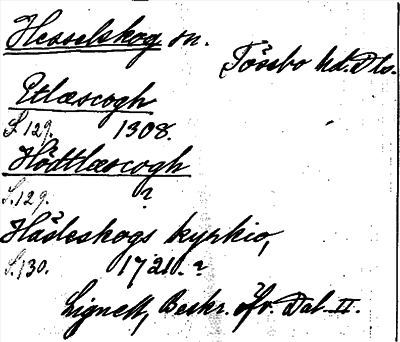 Hesselskog sn.
Tössbo hd. Dls.
Etlæscogh
S. 129. 1308.
Hödtlæscogh
S. 129. ?
Hasleskogs kyrkio,
S. 130. 1721. ?
Lignell, Beskr. öfv. Dal II.